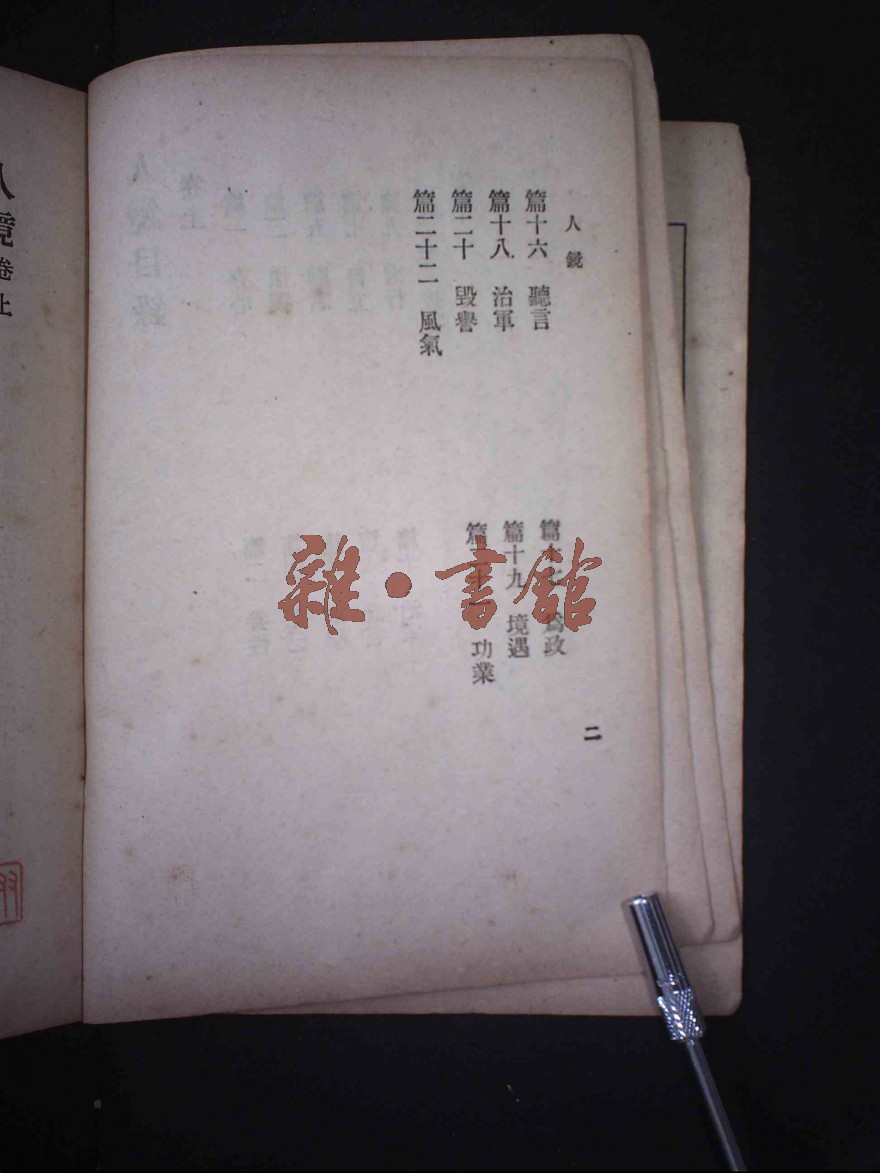 人鏡
篇十六 聽言
篇十七 爲政
篇十八 治軍
篇十九 境遇
篇二十 毀譽
篇二十一 功業
篇二十二 風氣
二
人鏡卷上
雜·書館